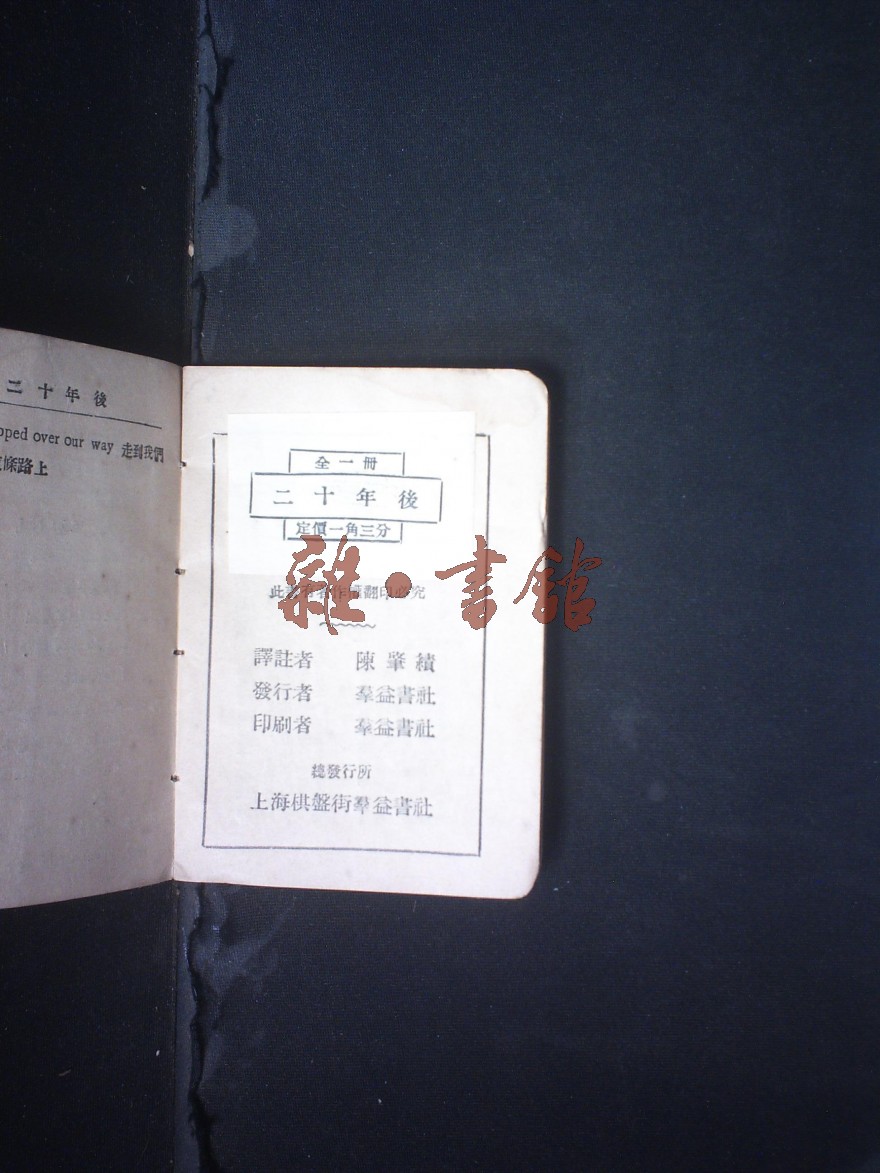 二十年後
pped over our way 走到我們
條路上
全一冊
二十年後
定價一角三分
此書有著作權翻印必究
譯註者 陳肇績
發行者 羣益書社
印刷者 羣益書社
總發行所
上海棋盤街羣益書社
雜·書館